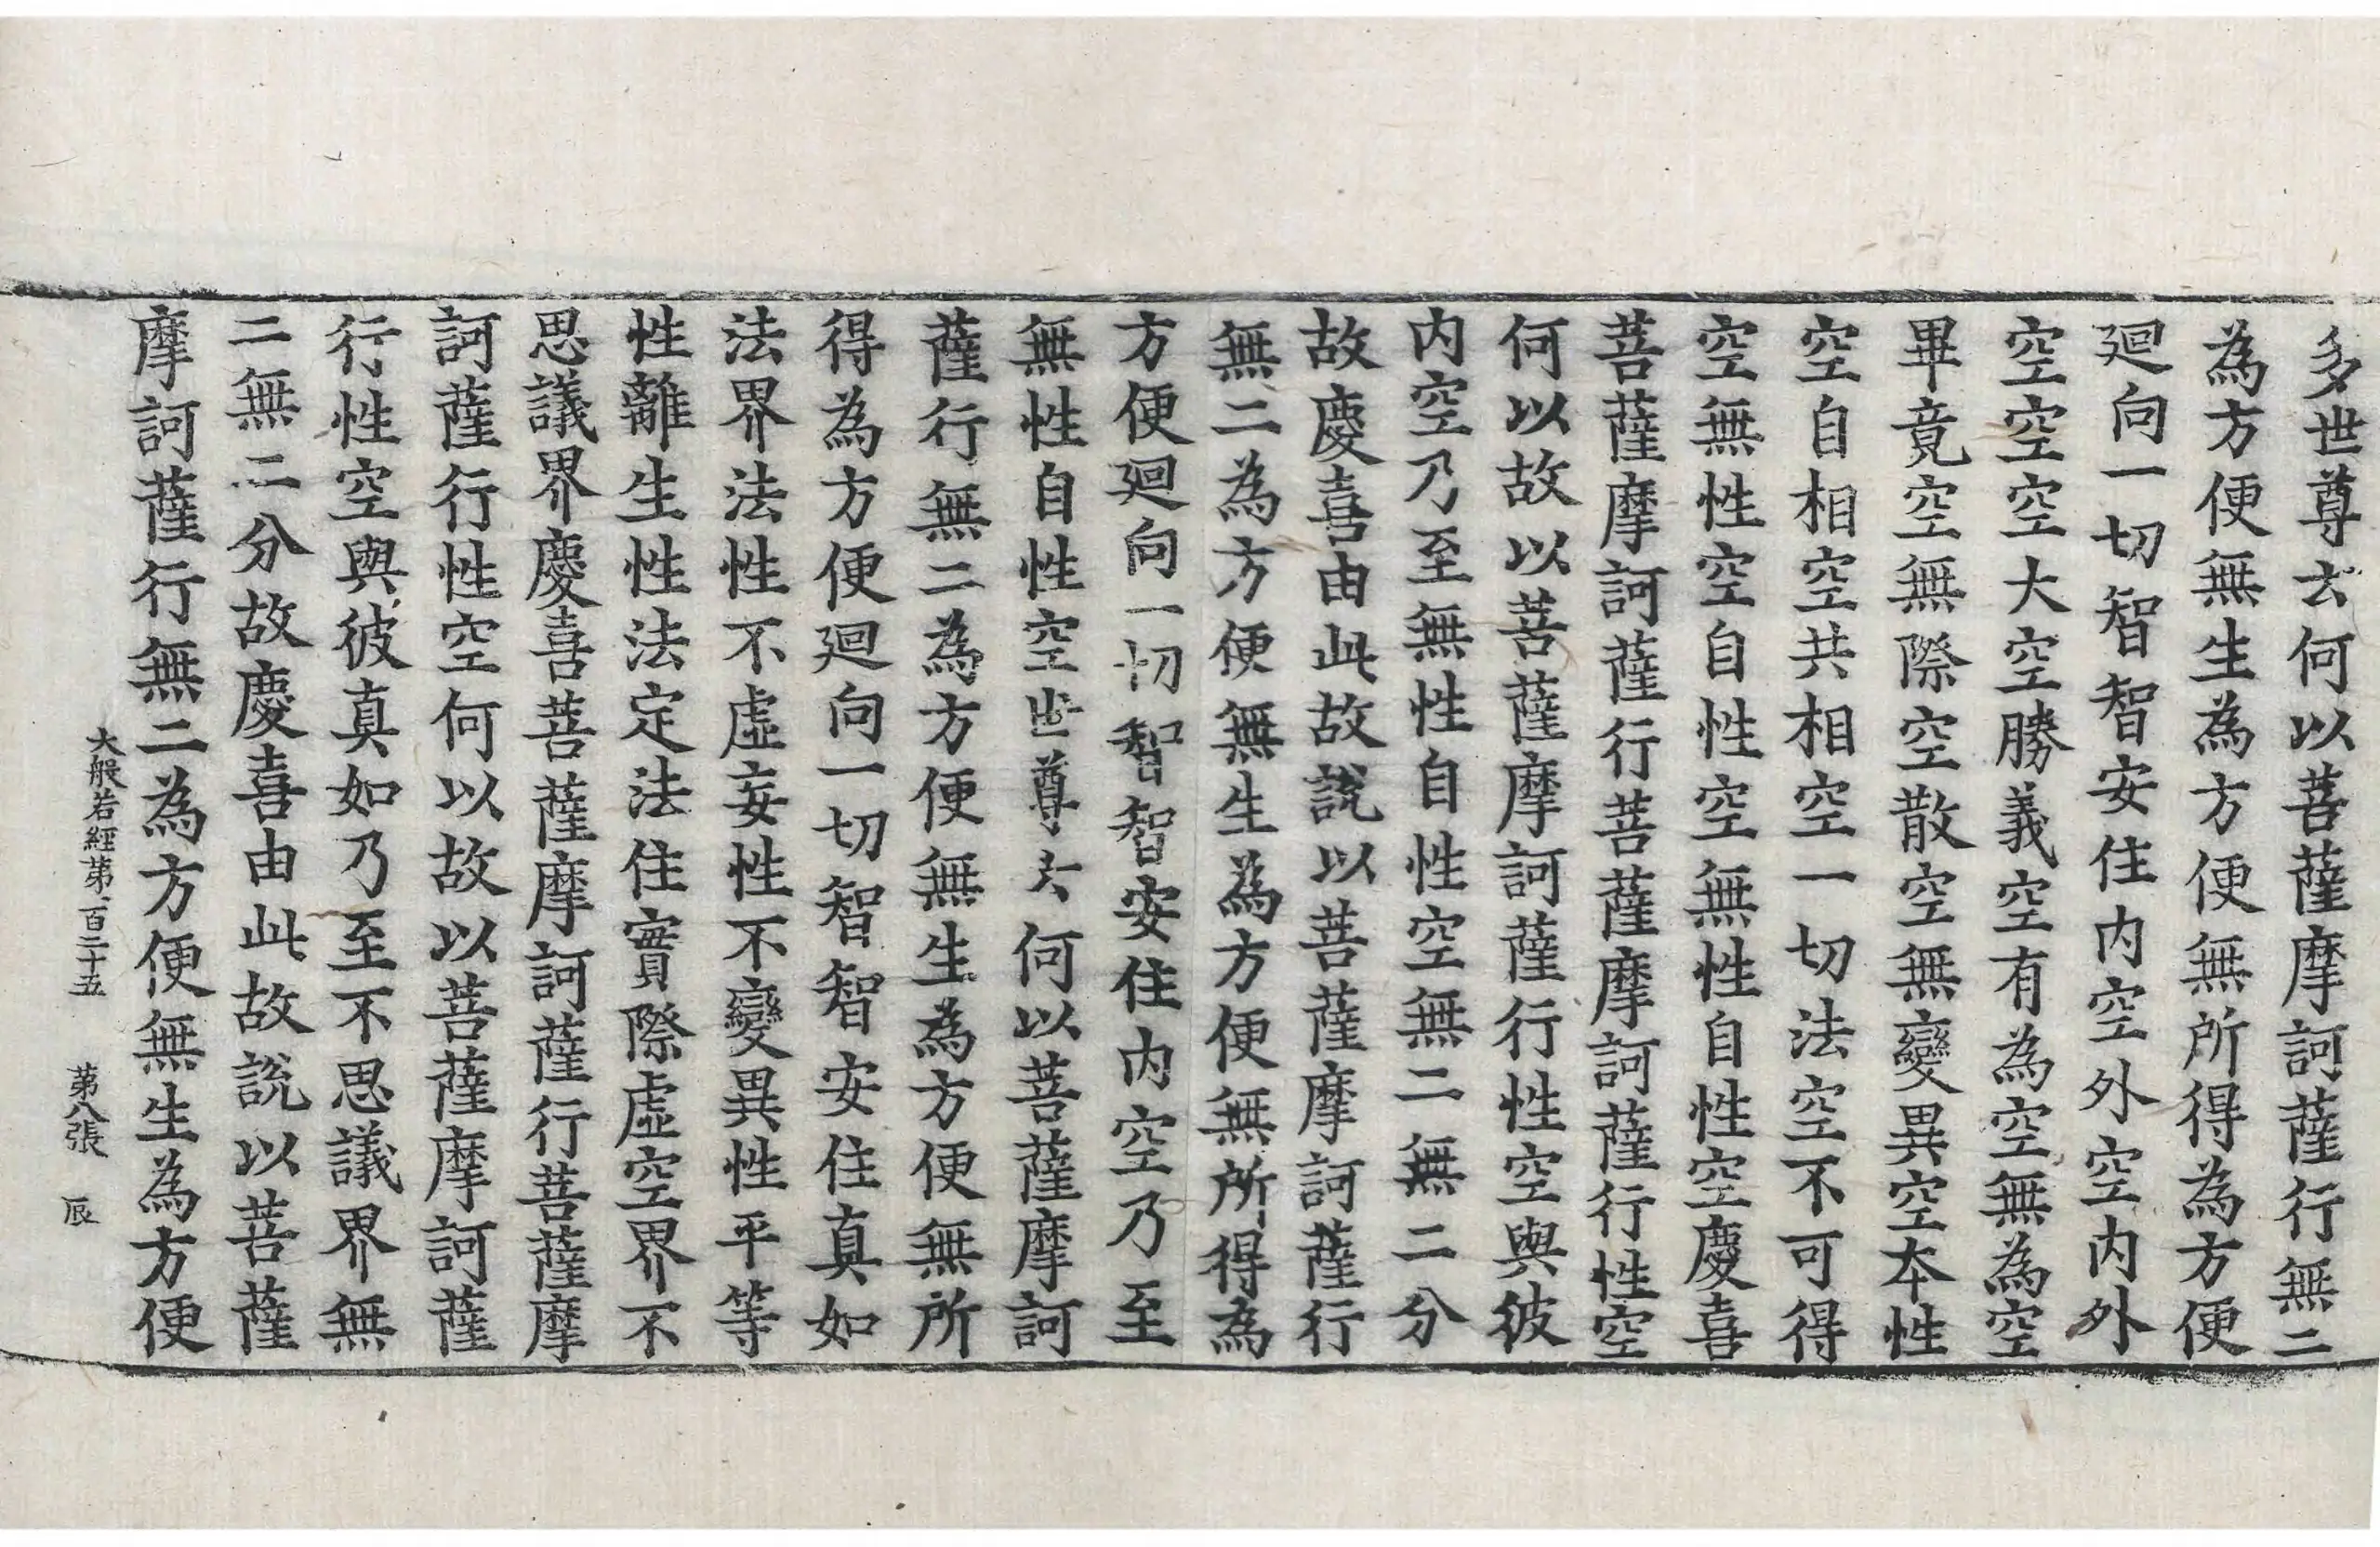 多世尊云何以菩薩摩訶薩行無二
為方便無生為方便無所得為方便
迴向一切智智安住内空外空内外
空空空大空勝義空有為空無為空
畢竟空無際空散空無變異空本性
空自相空共相空一切法空不可得
空無性空自性空無性自性空慶喜
菩薩摩訶薩行菩薩摩訶薩行性空
何以故以菩薩摩訶薩行性空與彼
内空乃至無性自性空無二無二分
故慶喜由此故說以菩薩摩訶薩行
無二為方便無生為方便無所得為
方便迴向一切智智安住内空乃至
無性自性空世尊云何以菩薩摩訶
薩行無二為方便無生為方便無所
得為方便迴向一切智智安住真如
法界法性不虛妄性不變異性平等
性離生性法定法住實際虛空界不
思議界慶喜菩薩摩訶薩行菩薩摩
訶薩行性空何以故以菩薩摩訶薩
行性空與彼真如乃至不思議界無
二無二分故慶喜由此故說以菩薩
摩訶薩行無二為方便無生為方便
大般若經第一百二十五 第八張 辰